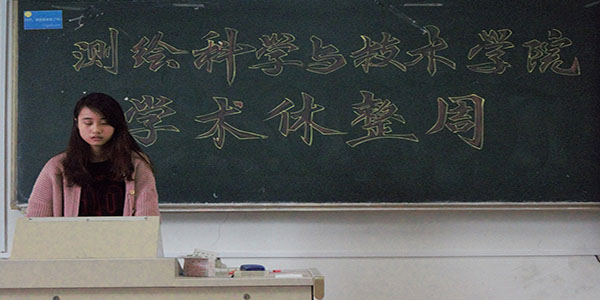 测绘科学与技术学院
学术休整周